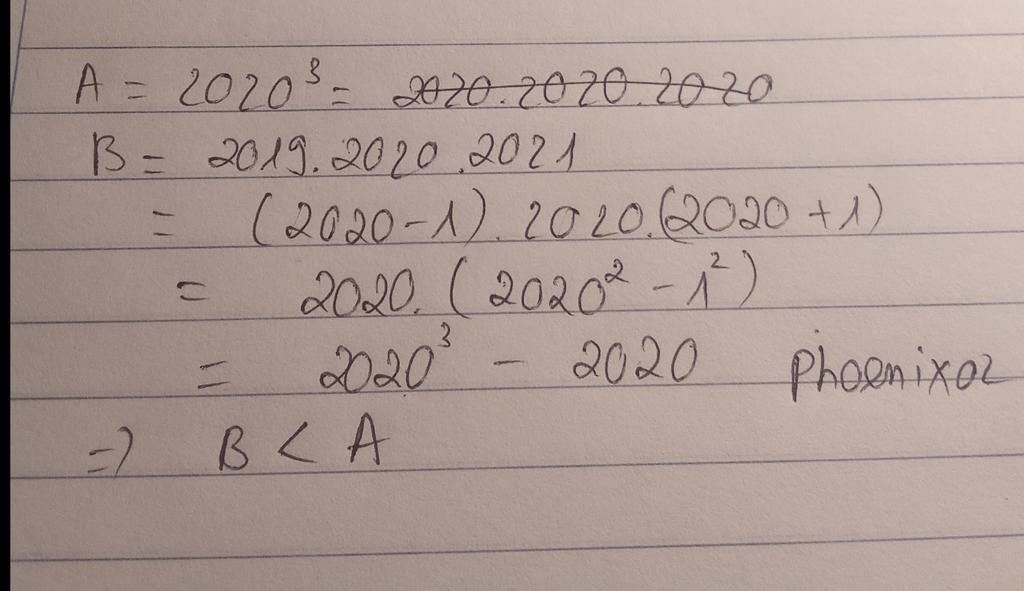 A = 2020³ = 2020.2020.2020
B = 2019.2020.2021
= (2020-1).2020.(2020+1)
= 2020.(2020² - 1²)
= 2020³ - 2020 Phoenixoz
=> B < A